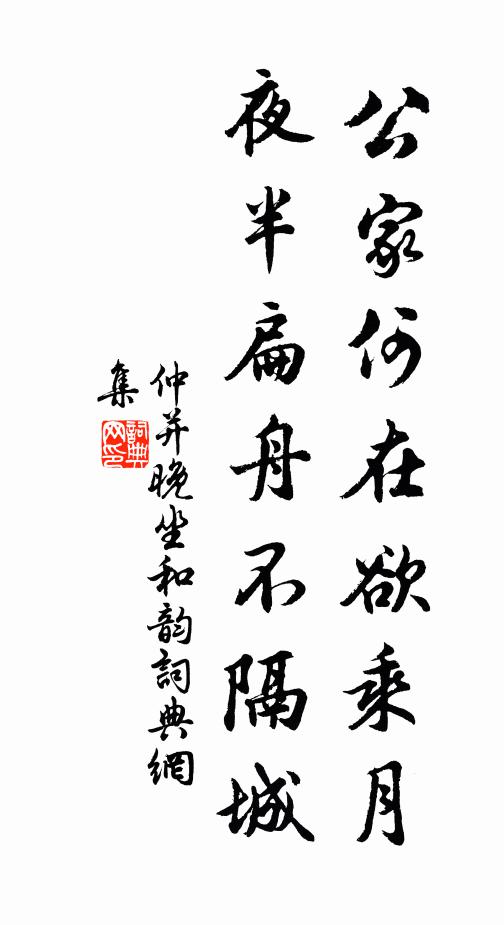 公家何在欲乘月
夜半扁舟不隔城
仲并晚坐和韵詞典網
集
詞典
网印